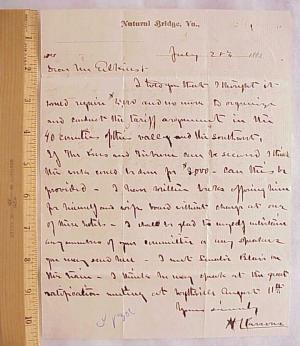 Natural Bridge, Va.,
July 28th 188
Dear Mr Elkins:
I told you that I thought it
would require $4,500 and no more to organize
and conduct the tariff argument in the
40 counties of the valley and the southwest,
If the News and Tribune can be secured I think
the sum could be done for $3,000 - can this be
provided - I have written him offering him
for himself and wife board without charge at one
of their hotels - I shall be glad to myself entertain
any number of your committee or any speakers
you may send me - I met Senator Blair on
the train - I think he may speak at the great
ratification meeting at Wytheville August 11th
Yours sincerely,